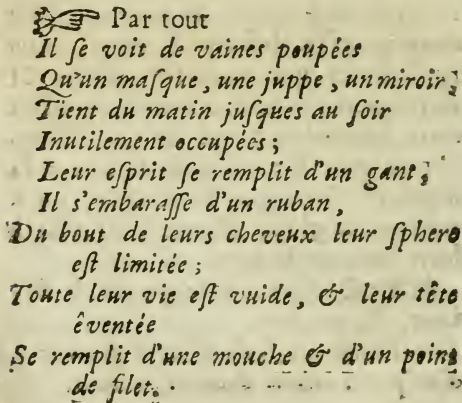 ☞ Par tout
Il ſe voit de vaines poupées
Qu'un maſque, une juppe, un miroir,
Tient du matin juſques au ſoir
Inutilement occupées;
Leur eſprit ſe remplit d'un gant;
Il s'embaraſſe d'un ruban,
Du bout de leurs cheveux leur ſphere
eſt limitée;
Toute leur vie eſt vuide, & leur tête
êventée
Se remplit d'une mouche & d'un point
de filet.